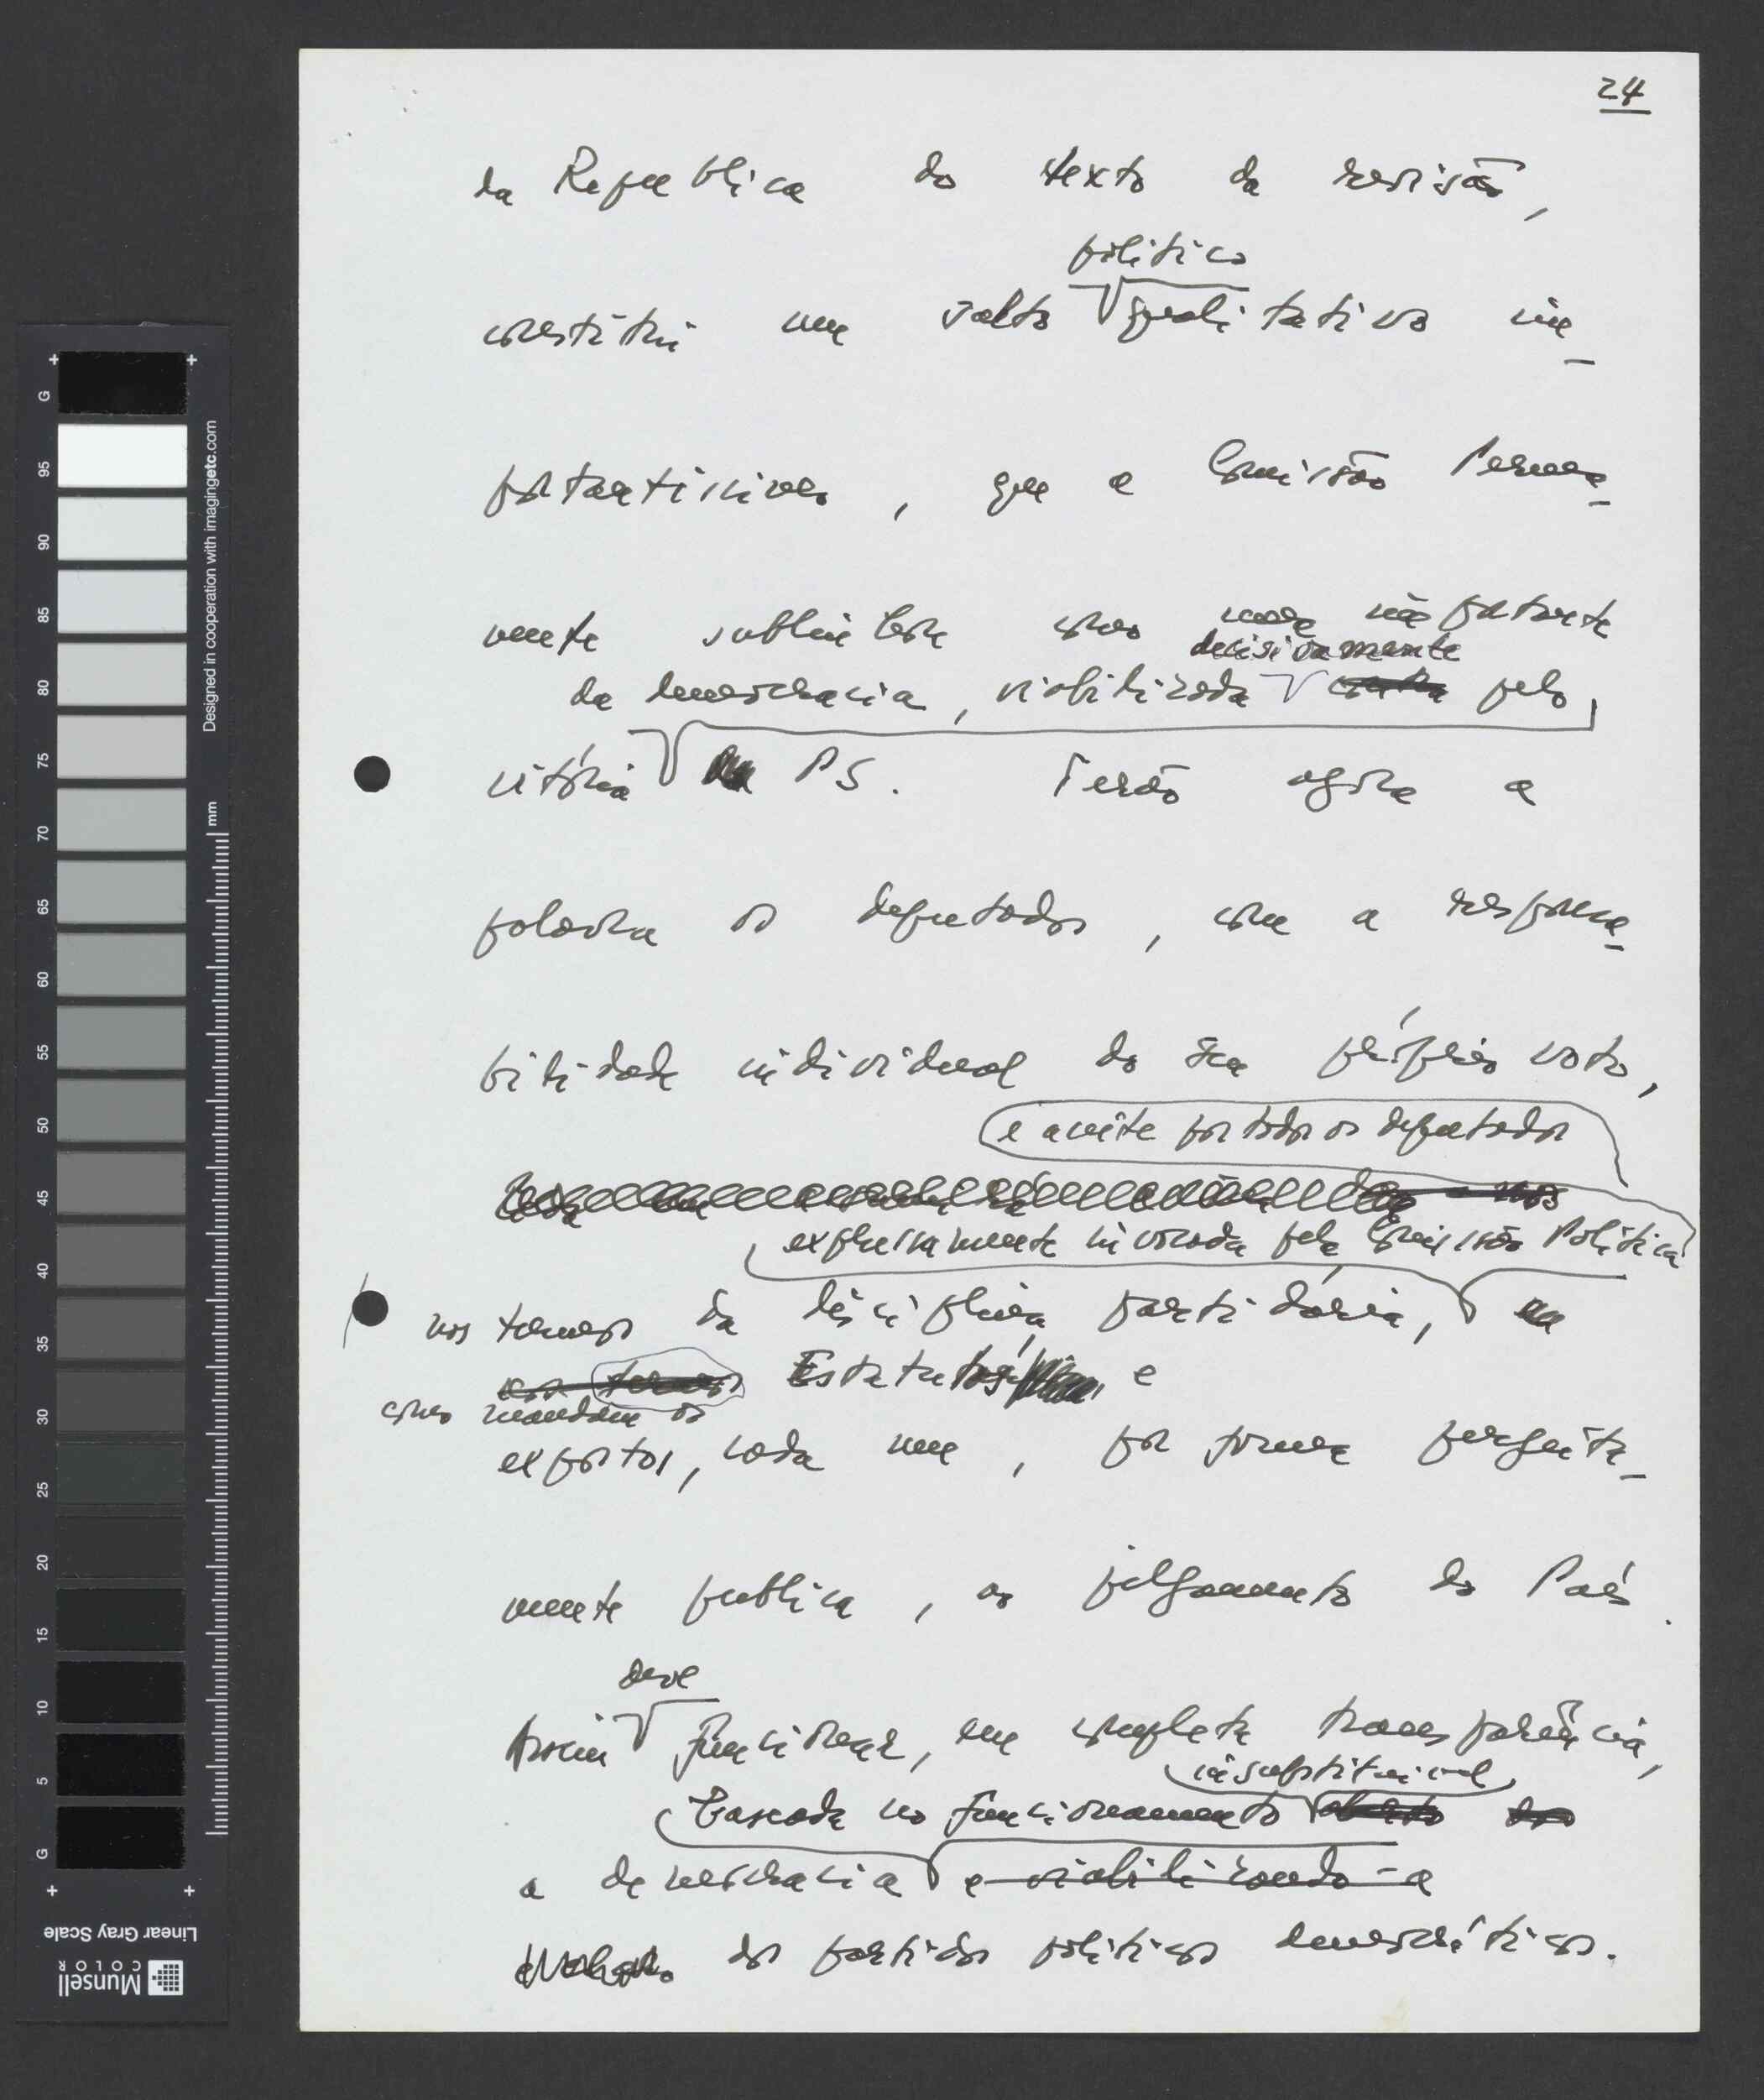 24
da Republica do texto da revisão,
politico
constitui um salto qualitativo im-
portantissimo, que a Comissão Perma-
nente sublinha como uma importante
decisivamente
da democracia, viabilizada pelo
vitória PS. Terão agora a
palavra os deputados, com a responsa-
bilidade individual do seu próprio voto,
e aceite por todos os deputados
expressamente invocada pela Comissão Politica
nos termos da disciplina partidária,
termos Estatutos e
como mandam os
expostos, cada um, por forma perfeita-
mente publica, ao julgamento do País.
deve
Assim funcionar, em completa transparência,
insubstituivel
baseada no funcionamento aberto dos
a democracia e viabilizando-a
dos partidos politicos democráticos.
Designed in cooperation with imagingetc.com
mm
G
95
90
85
80
75
70
65
60
55
50
45
40
35
30
25
20
15
10
5
G
Linear Gray Scale
Munsell
COLOR